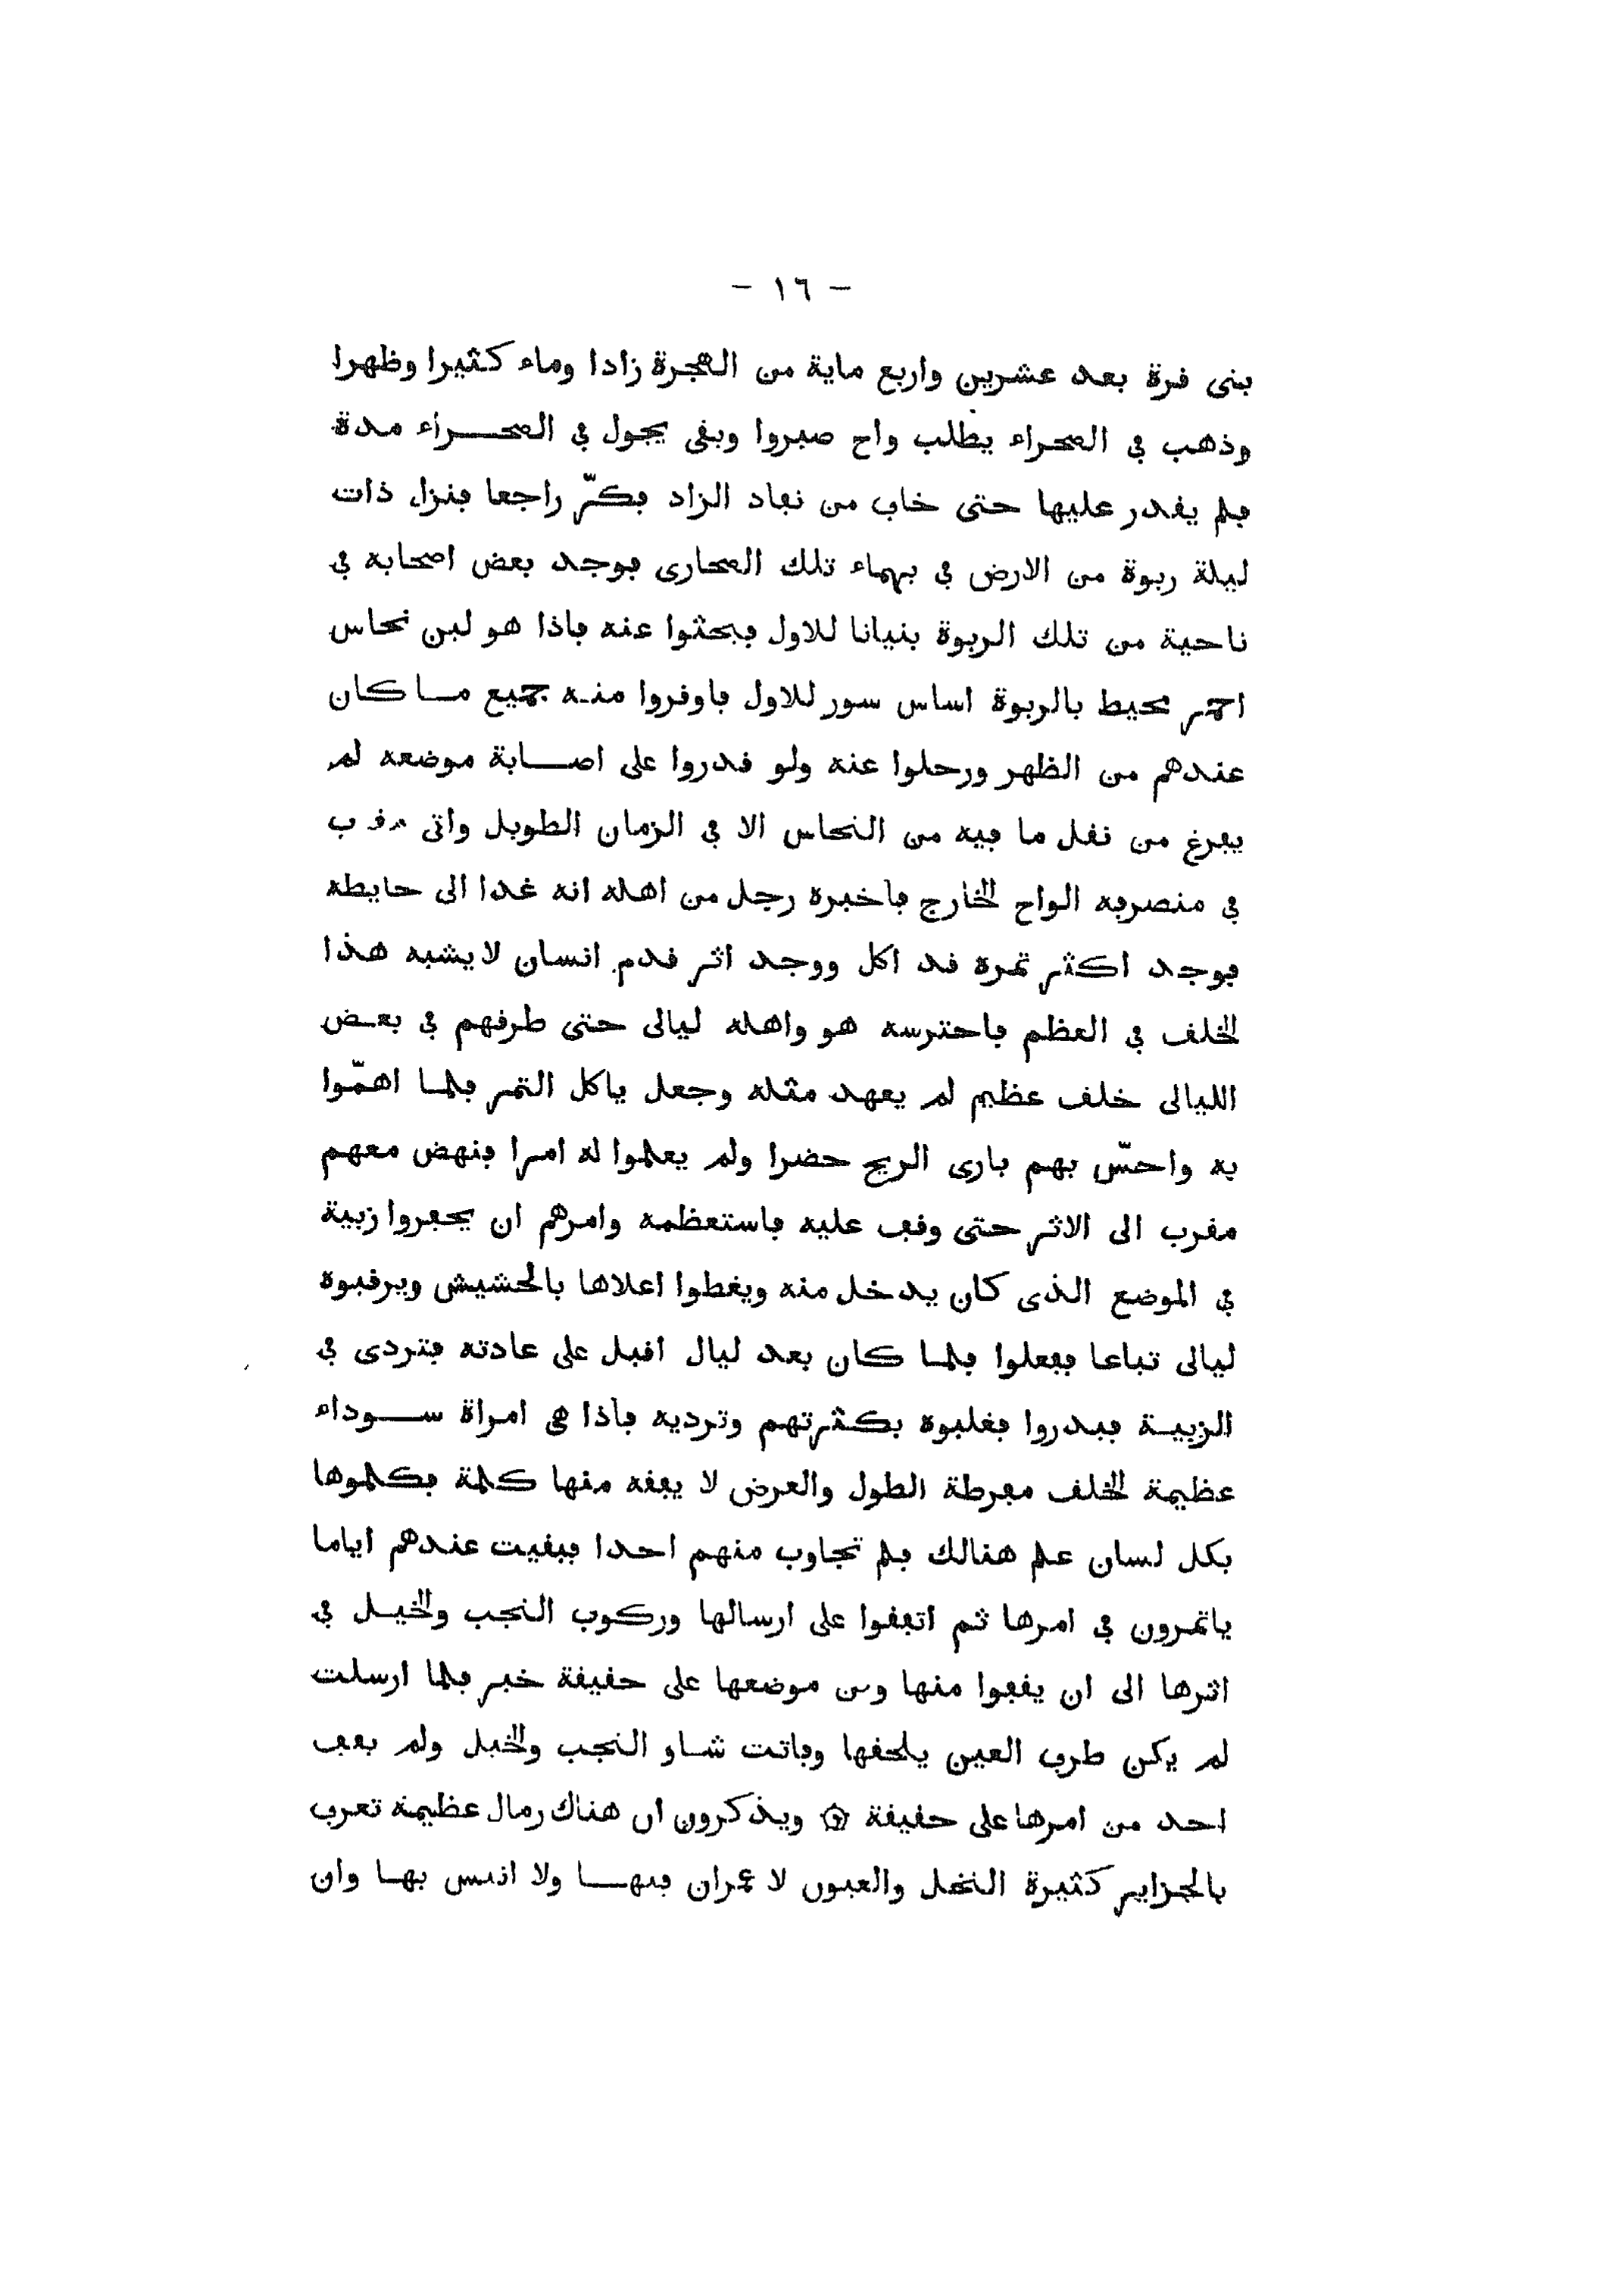 - ١٦ -
بنى قرة بعد عشرين واربع ماية من الهجرة زادا وماء كثيرا وظهرا
وذهب في الصحراء يطلب واح صبروا وبقى يجول في الصحراء مدة
فلم يقدر عليها حتى خاف من نفاد الزاد فكرّ راجعا فنزل ذات
ليلة ربوة من الارض في بهماء تلك الصحارى فوجد بعض اصحابه في
ناحية من تلك الربوة بنيانا للاول فبحثوا عنه فاذا هو لبن نحاس
احمر محيط بالربوة اساس سور للاول فاوقروا منه جميع ما كان
عندهم من الظهر ورحلوا عنه ولو قدروا على اصابة موضعه لم
يفرغ من نقل ما فيه من النحاس الا في الزمان الطويل واتى مقرب
في منصرفه الواح الخارج فاخبره رجل من اهله انه غدا الى حايطه
فوجد اكثر تمره قد اكل ووجد اثر قدم انسان لا يشبه هذا
الخلق في العظم فاحترسه هو واهله ليالى حتى طرقهم في بعض
الليالى خلق عظيم لم يعهد مثله وجعل ياكل التمر فلما اهمّوا
به واحسّ بهم بارى الريح حضرا ولم يعلموا له امرا فنهض معهم
مقرب الى الاثر حتى وقف عليه فاستعظمه وامرهم ان يحفروا زبية
في الموضع الذى كان يدخل منه ويغطوا اعلاها بالحشيش ويرقبوه
ليالى تباعا ففعلوا فلما كان بعد ليال اقبل على عادته فتردى في
الزبية فبدروا فغلبوه بكثرتهم وترديه فاذا هى امراة سوداء
عظيمة الخلق مفرطة الطول والعرض لا يفقه منها كلمة فكلموها
بكل لسان علم هنالك فلم تجاوب منهم احدا فبقيت عندهم اياما
ياتمرون في امرها ثم اتفقوا على ارسالها وركوب النجب والخيل في
اثرها الى ان يقفوا منها ومن موضعها على حقيقة خبر فلما ارسلت
لم يكن طرف العين يلحقها وفاتت شاو النجب والخيل ولم يقف
احد من امرها على حقيقة ۞ ويذكرون ان هناك رمال عظيمة تعرف
بالجزاير كثيرة النخل والعيون لا عمران فيها ولا انيس بها وان